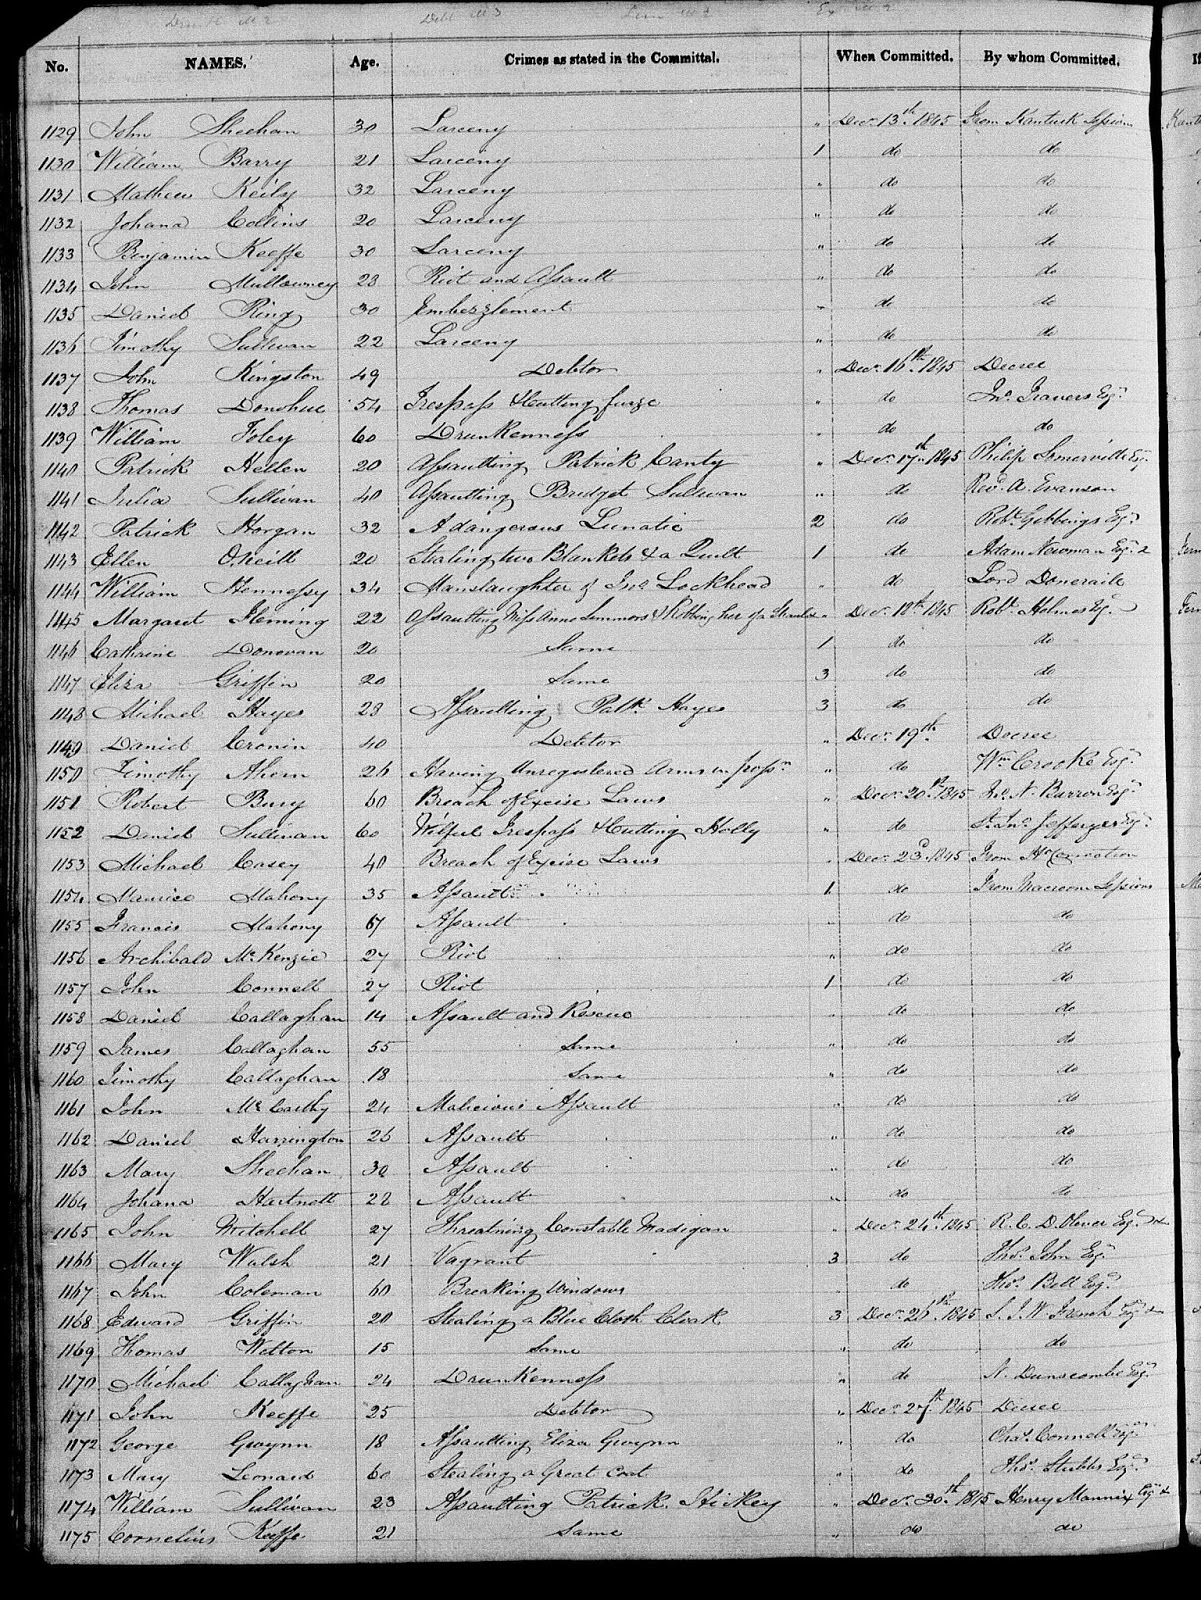 No. NAMES. Age. Crimes as stated in the Committal. When Committed. By whom Committed.
1129 John Sheehan 30 Larceny " Decr 13th 1845 From Kanturk Sessions
1130 William Barry 21 Larceny 1 do do
1131 Mathew Keily 32 Larceny " do do
1132 Johana Collins 20 Larceny " do do
1133 Benjamin Keeffe 30 Larceny " do do
1134 John Mullowney 23 Riot and Assault " do do
1135 Daniel Ring 30 Embezzlement " do do
1136 Timothy Sullivan 22 Larceny " do do
1137 John Kingston 49 Debtor " Decr 16th 1845 Decree
1138 Thomas Donohue 54 Trespass & Cutting furze " do Jno. Travers Esqr
1139 William Foley 60 Drunkenness " do do
1140 Patrick Hellen 20 Assaulting Patrick Canty " Decr 17th 1845 Philip Somerville Esqr
1141 Julia Sullivan 40 Assaulting Bridget Sullivan " do Revd A. Evanson
1142 Patrick Horgan 32 A dangerous Lunatic 2 do Robt Gebbings Esqr
1143 Ellen ONeill 20 Stealing two Blankets & a Quilt 1 do Adam Newman Esqr &
1144 William Hennessy 34 Manslaughter of Jno. Lockhead " do Lord Doneraile
1145 Margaret Fleming 22 Assaulting Miss Anne Simmons & Robbing her of a " Decr 18th 1845 Robt Holmes Esqr
1146 Catharine Donovan 20 Same 1 do do
1147 Eliza Griffin 20 Same 3 do do
1148 Michael Hayes 23 Assaulting Patk Hayes 3 do do
1149 Daniel Cronin 40 Debtor " Decr 19th Decree
1150 Timothy Ahern 26 Having Unregistered Arms in possn " do Wm Crooke Esqr
1151 Robert Bury 60 Breach of Excise Laws " Decr 20th 1845 N. Barron Esqr
1152 Daniel Sullivan 60 Wilful Trespass & Cutting Holly " do Esqr
1153 Michael Casey 40 Breach of Excise Laws " Decr 23d 1845 From
1154 Maurice Mahony 35 Assault 1 do From Macroom Sessions
1155 Francis Mahony 67 Assault " do do
1156 Archibald McKenzie 27 Riot " do do
1157 John Connell 27 Riot 1 do do
1158 Daniel Callaghan 14 Assault and Rescue " do do
1159 James Callaghan 55 Same " do do
1160 Timothy Callaghan 18 Same " do do
1161 John McCarthy 24 Malicious Assault " do do
1162 Daniel Harrington 26 Assault " do do
1163 Mary Sheehan 30 Assault " do do
1164 Johana Hartnett 22 Assault " do do
1165 John Mitchell 27 Threatning Constable Madigan " Decr 24th 1845 R. C. D. Oliver Esqr &
1166 Mary Walsh 21 Vagrant 3 do Thos. John Esqr
1167 John Coleman 60 Breaking Windows " do Thos. Bell Esqr
1168 Edward Griffin 20 Stealing a Blue Cloth Cloak 3 Decr 26th 1845 S. J. W. French Esqr &
1169 Thomas Welton 15 Same " do do
1170 Michael Callaghan 24 Drunkenness " do N. Dunscombe Esqr
1171 John Keeffe 25 Debtor " Decr 27th 1845 Decree
1172 George Gwynn 18 Assaulting Eliza Gwynn " do Chas. Connell Esqr
1173 Mary Leonard 60 Stealing a Great Coat " do Thos. Stubbs Esqr
1174 William Sullivan 23 Assaulting Patrick Hickey " Decr 30th 1845 Henry Mannix Esqr &
1175 Cornelius Keeffe 21 Same " do do